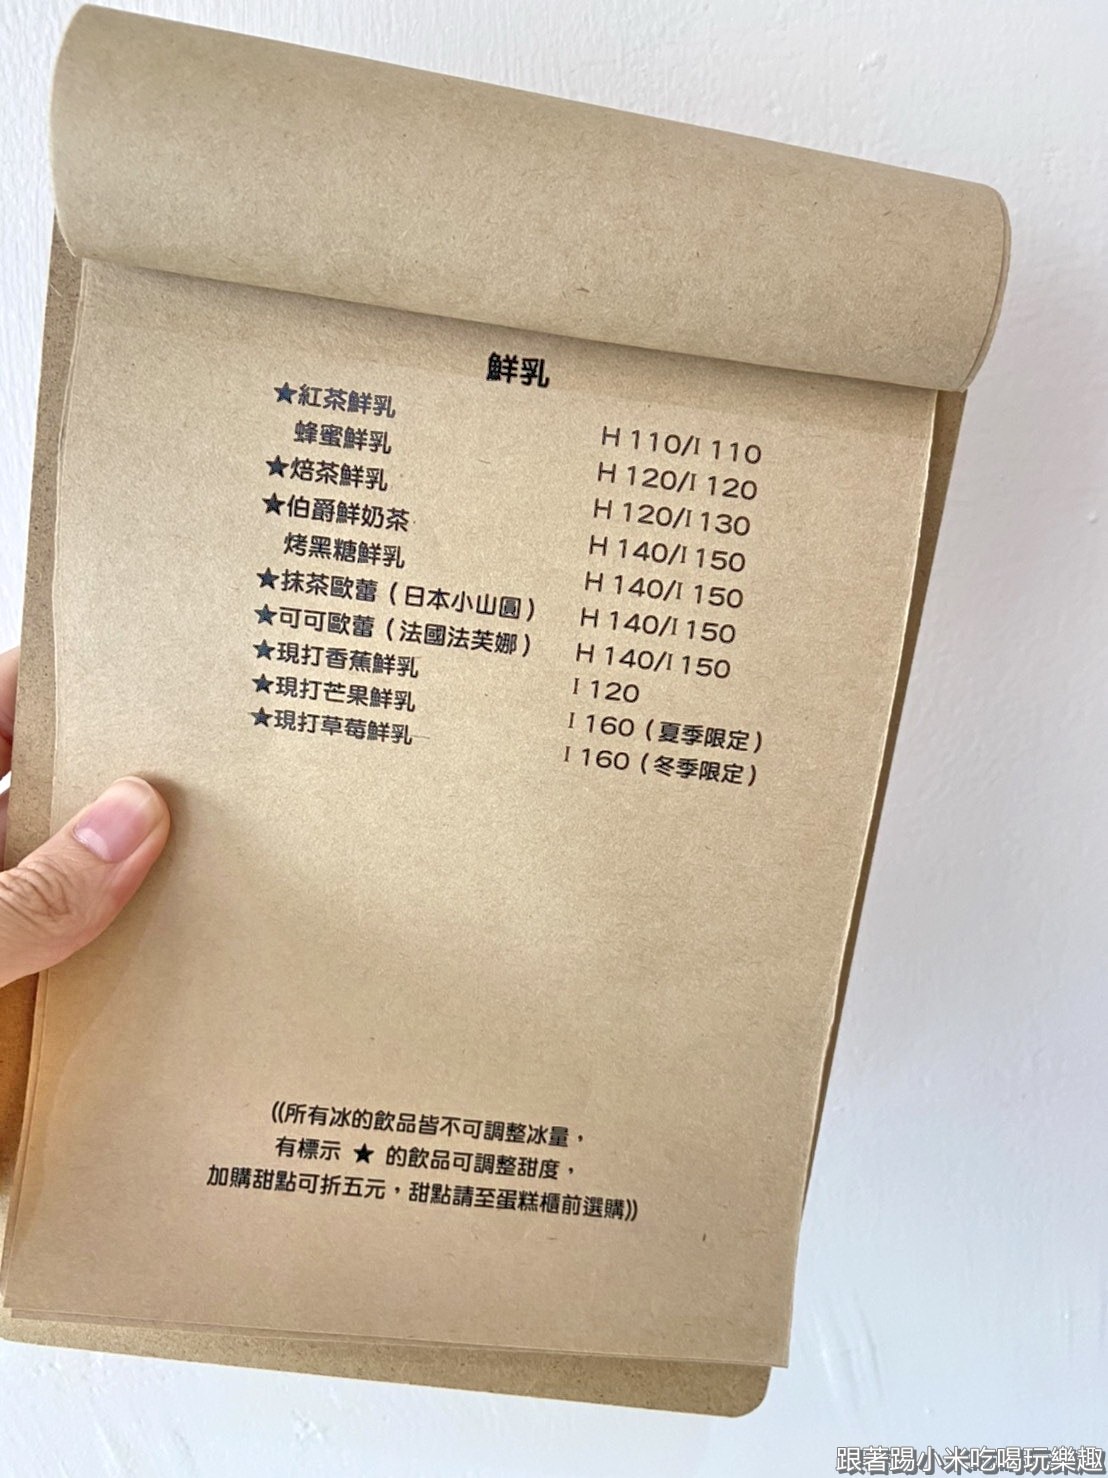 鮮乳
★紅茶鮮乳 H 110/I 110
蜂蜜鮮乳 H 120/I 120
★焙茶鮮乳 H 120/I 130
★伯爵鮮奶茶 H 140/I 150
烤黑糖鮮乳 H 140/I 150
★抹茶歐蕾（日本小山圓） H 140/I 150
★可可歐蕾（法國法芙娜） H 140/I 150
★現打香蕉鮮乳 I 120
★現打芒果鮮乳 I 160（夏季限定）
★現打草莓鮮乳 I 160（冬季限定）
((所有冰的飲品皆不可調整冰量，
有標示 ★ 的飲品可調整甜度，
加購甜點可折五元，甜點請至蛋糕櫃前選購))
跟著踢小米吃喝玩樂趣